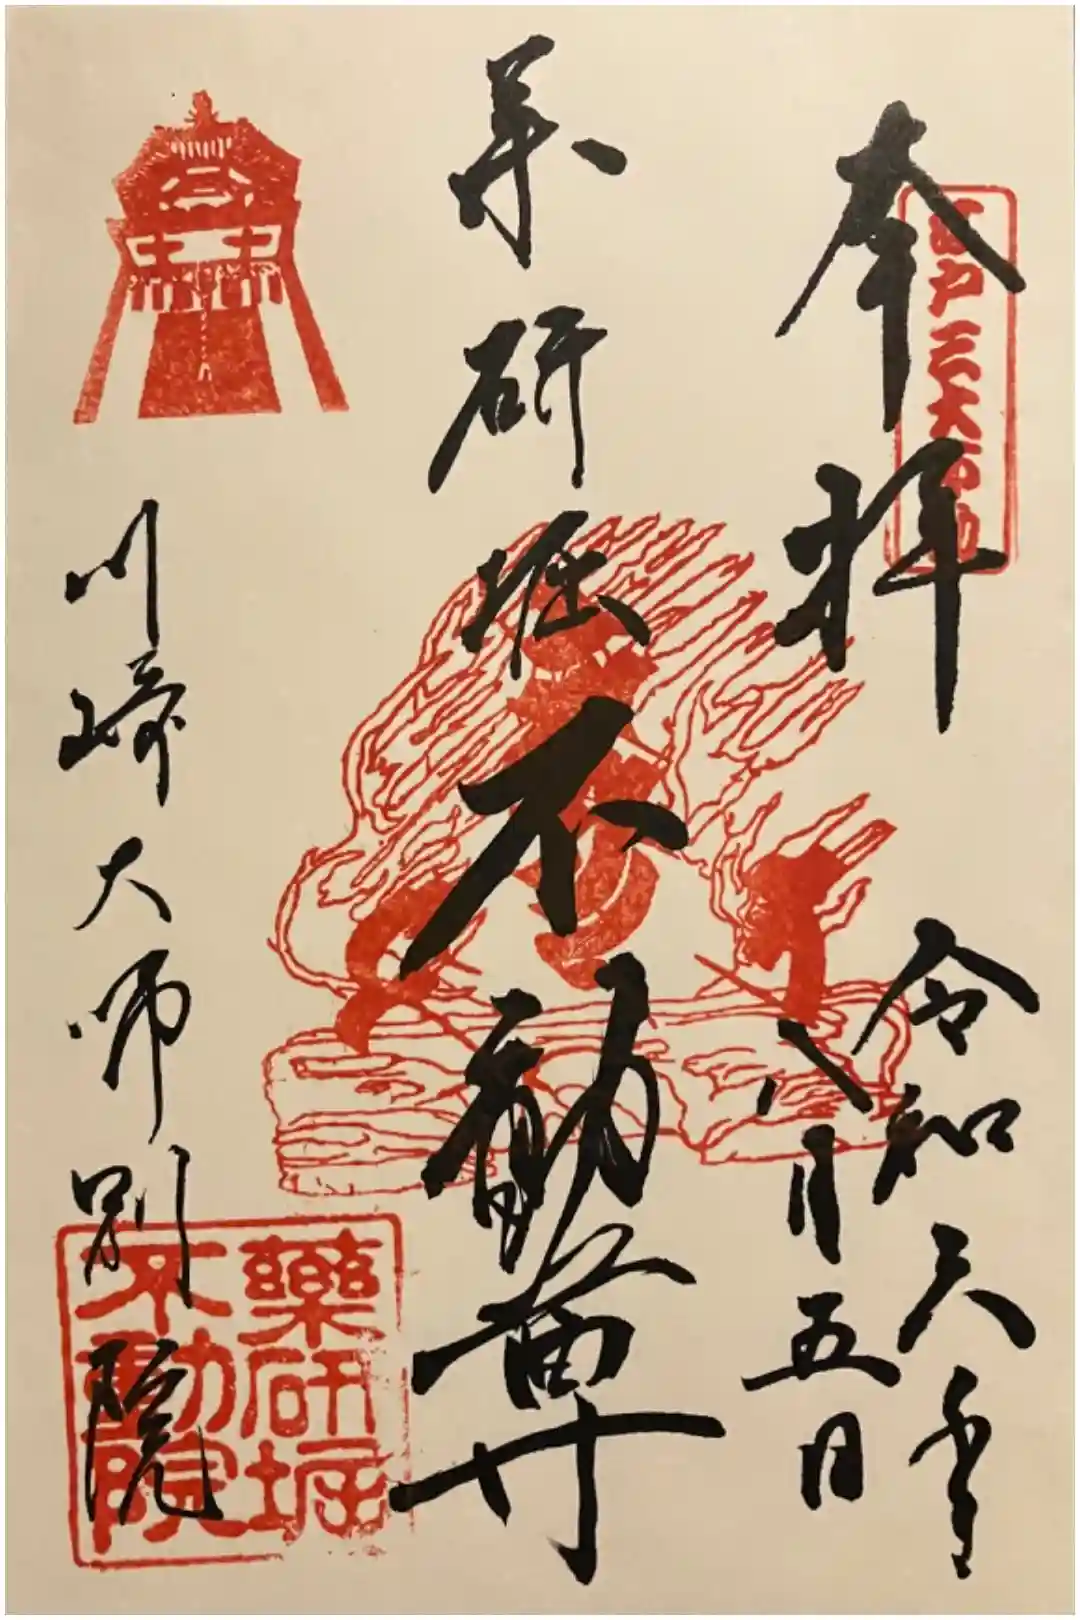 奉拝
江戸三大不動
令和六年
八月五日
薬研堀不動尊
川崎大師別院
藥研堀
不動院